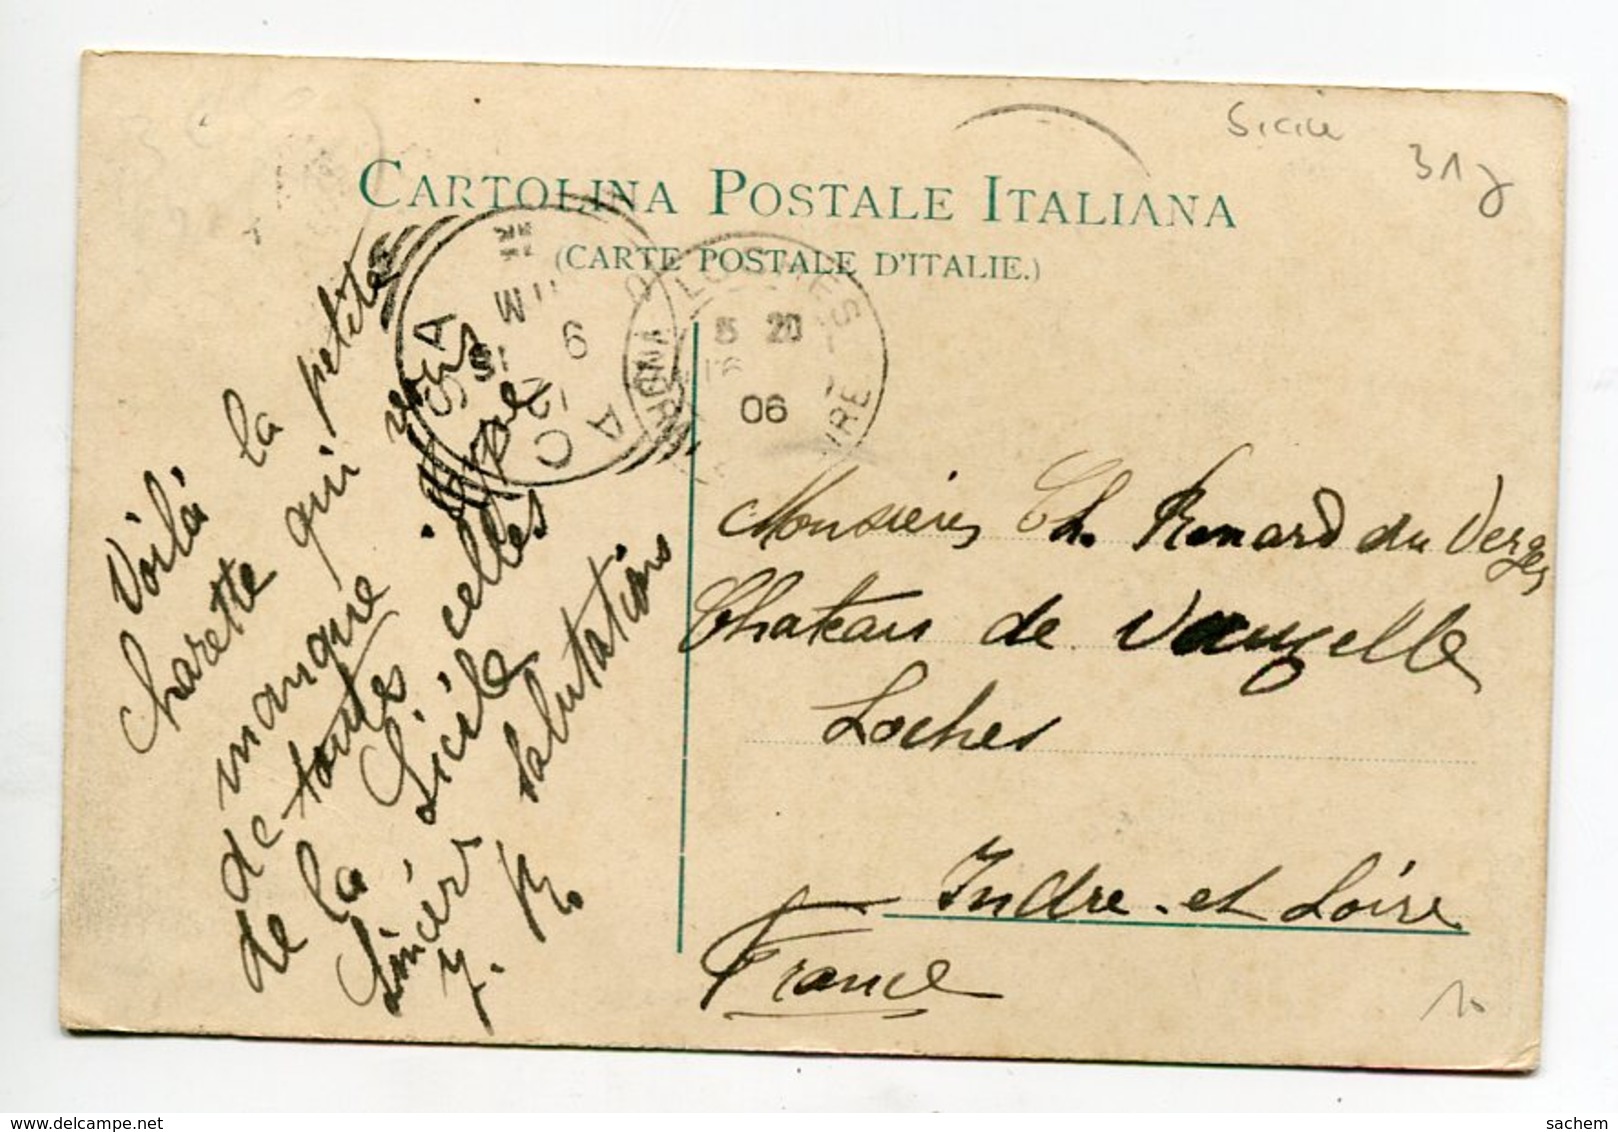 Sicile
31
CARTOLINA POSTALE ITALIANA
(CARTE POSTALE D'ITALIE.)
LOCHES
5 20
06
Voilà la petite
charette qui vous
manque
de toutes celles
de la Sicile
Sincères salutations
Monsieur Ch. Renard du Verger
Chateau de Vauzelle
Loches
Indre-et Loire
France
10
delcampe.net
sachem